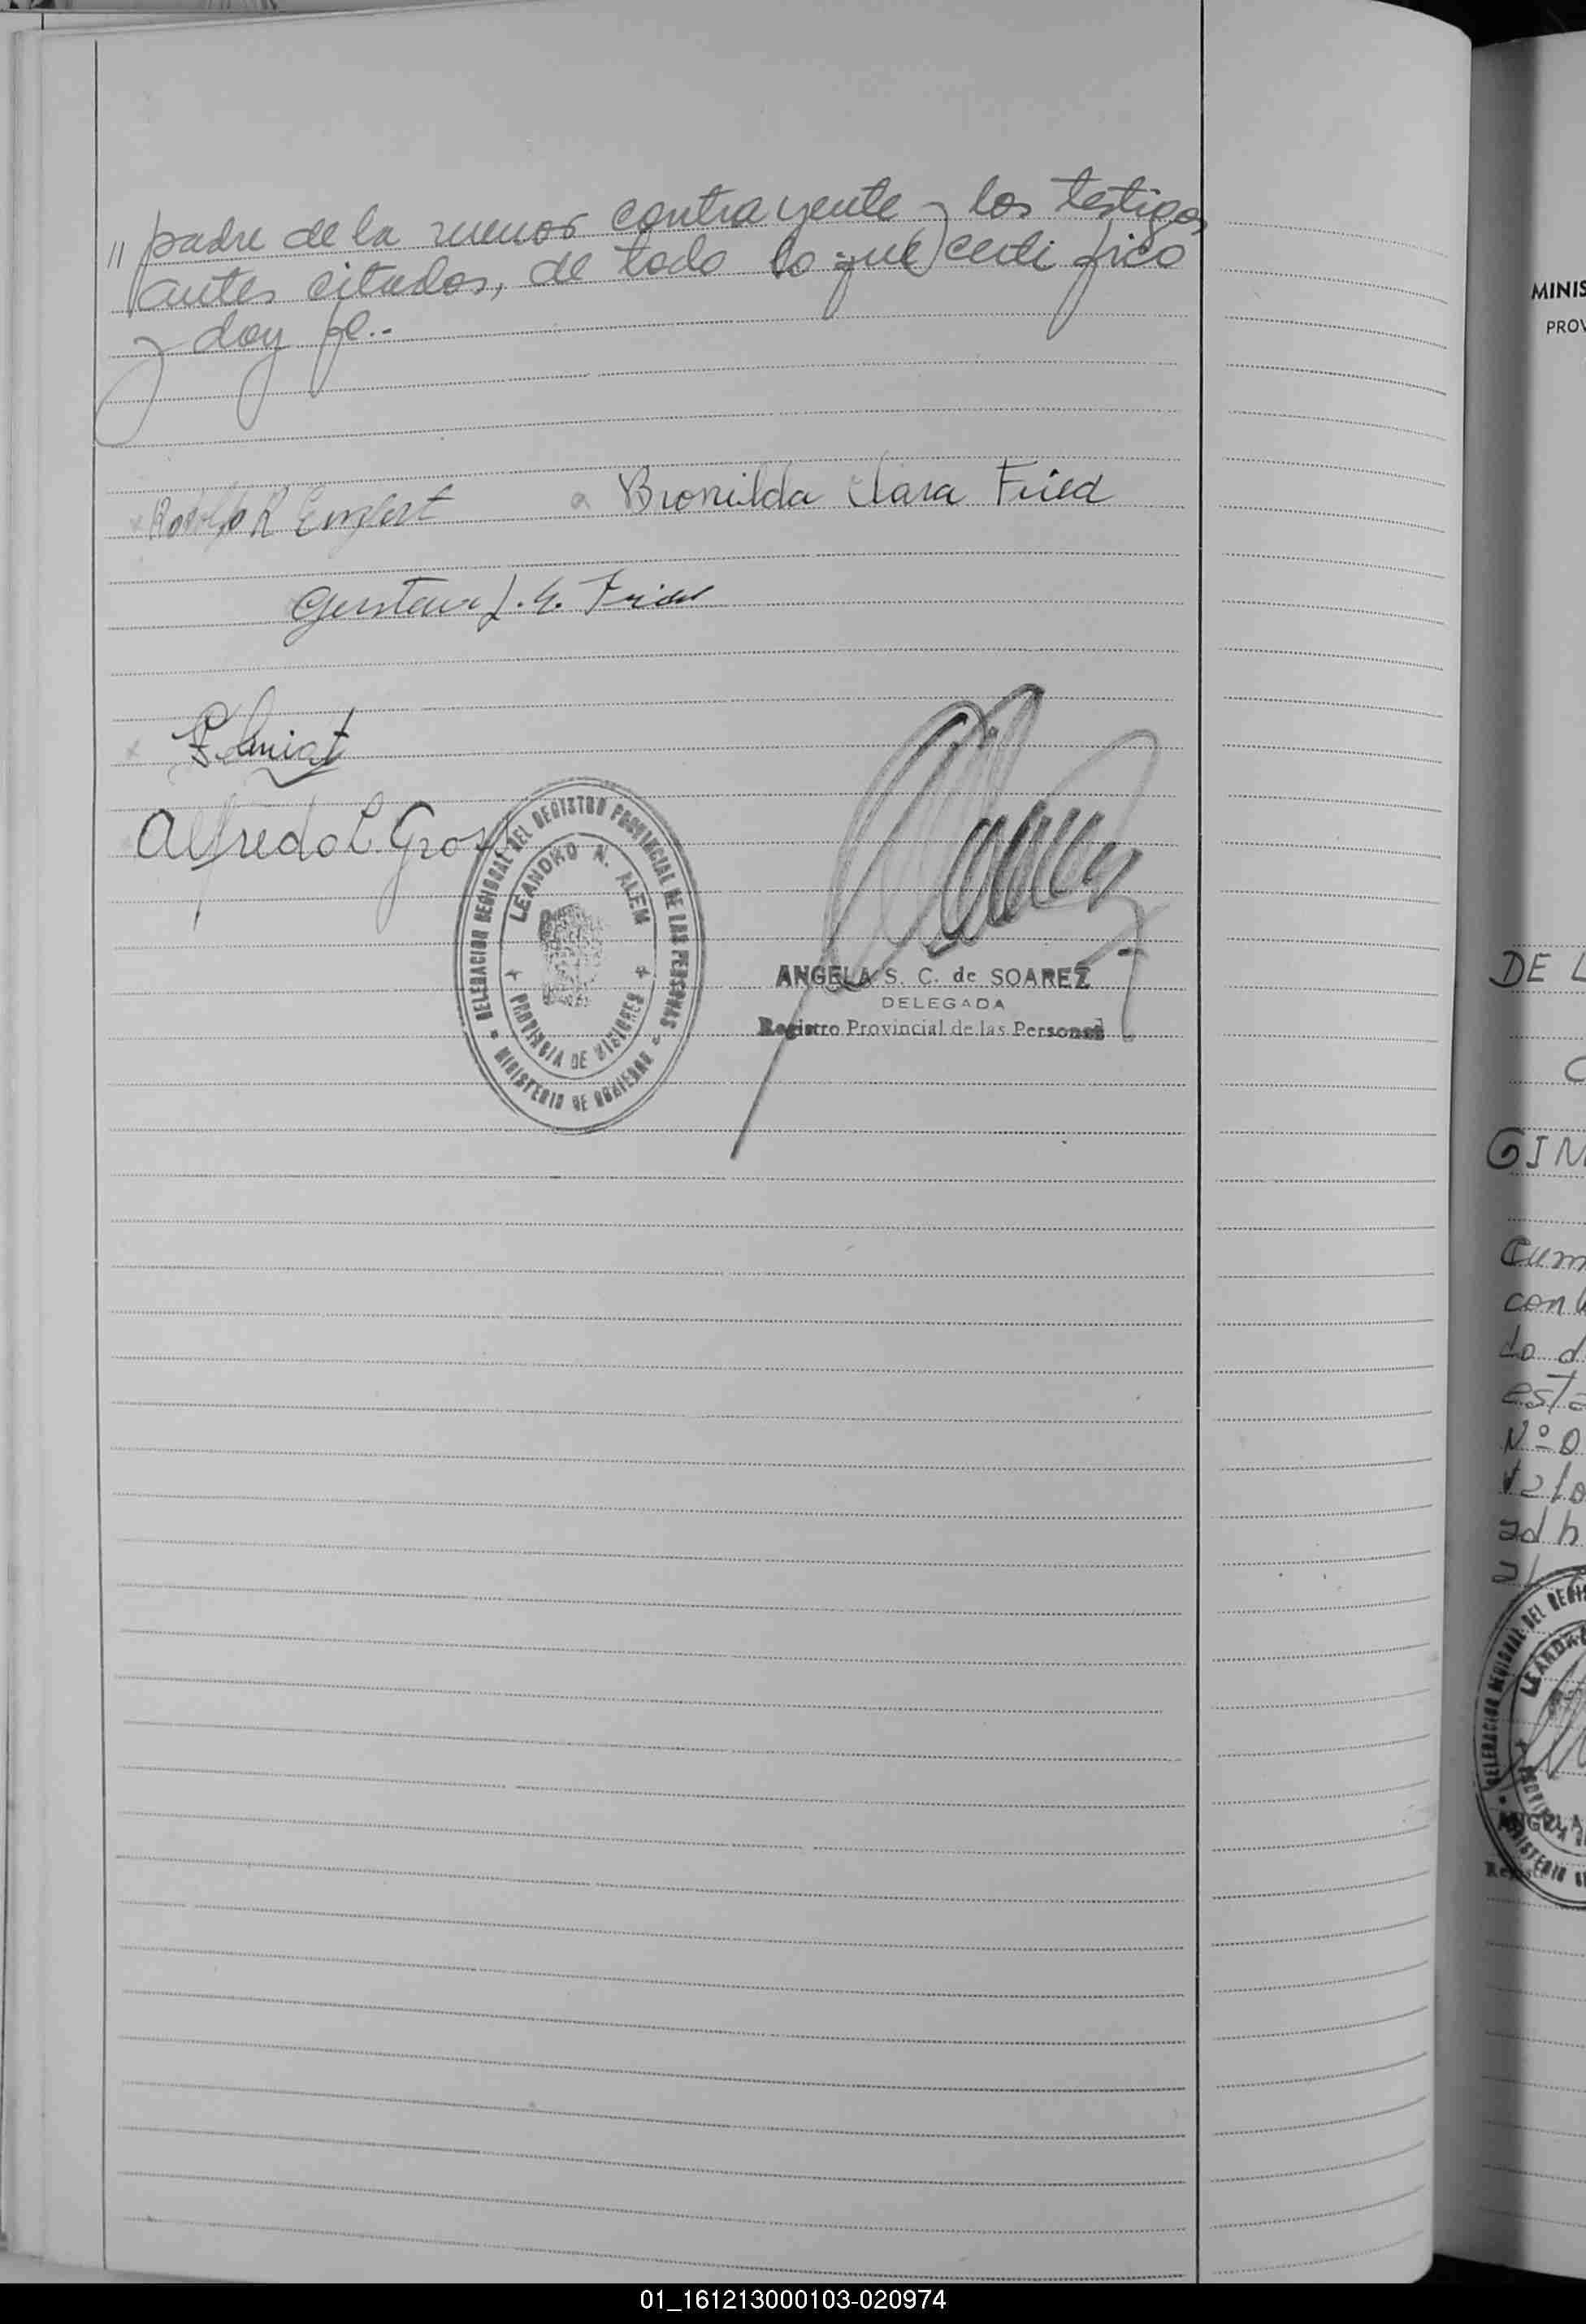 " padre de la menor contrayente y los testigos
antes citados, de todo lo que certifico
y doy fe.-
Rodolfo R
a Bronilda Clara Fried
Gustavo
Alfredo L. Gross
DELEGACION REGIONAL DEL REGISTRO PROVINCIAL DE LAS PERSONAS
MINISTERIO DE GOBIERNO
LEANDRO N. ALEM
PROVINCIA DE MISIONES
ANGELA S. C. de SOAREZ
DELEGADA
Registro Provincial de las Personas
MINIS
PROV
DE L
C
GIN
cum
con l
do d
esta
Nº 0
talo
ad h
DELEGACION REGIONAL DEL REGI
LEANDR
01_161213000103-020974